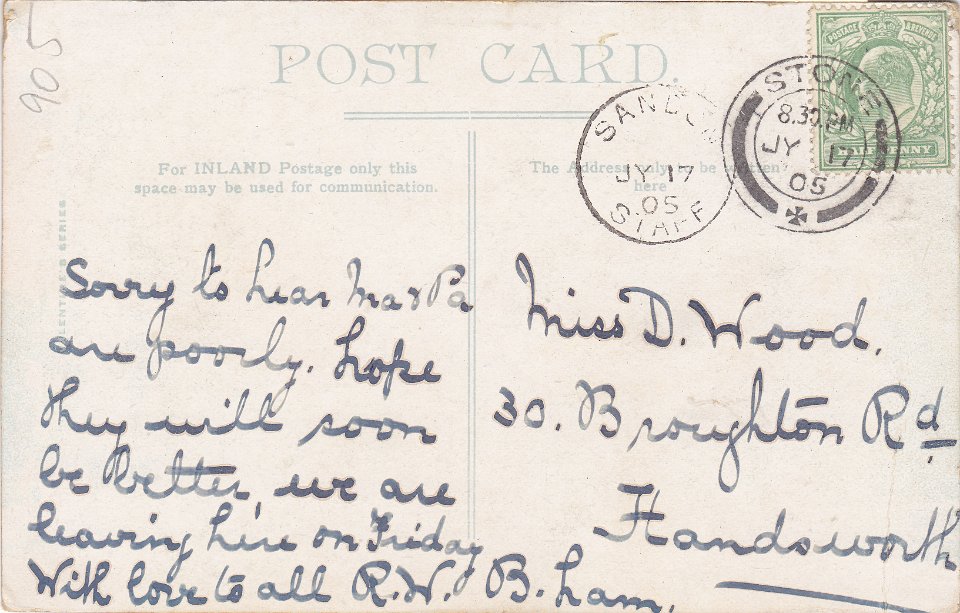 905
POST CARD.
POSTAGE REVENUE
HALF PENNY
STONE
8.30 PM
JY 17
05
SANDON
JY 17
05
STAFF
For INLAND Postage only this
space may be used for communication.
The Address only to be written
here
VALENTINE'S SERIES
Sorry to hear Ma & Pa
are poorly. hope
they will soon
be better, we are
leaving here on Friday
With love to all R.W. B.ham.
Miss D. Wood.
30. Broughton Rd
Handsworth